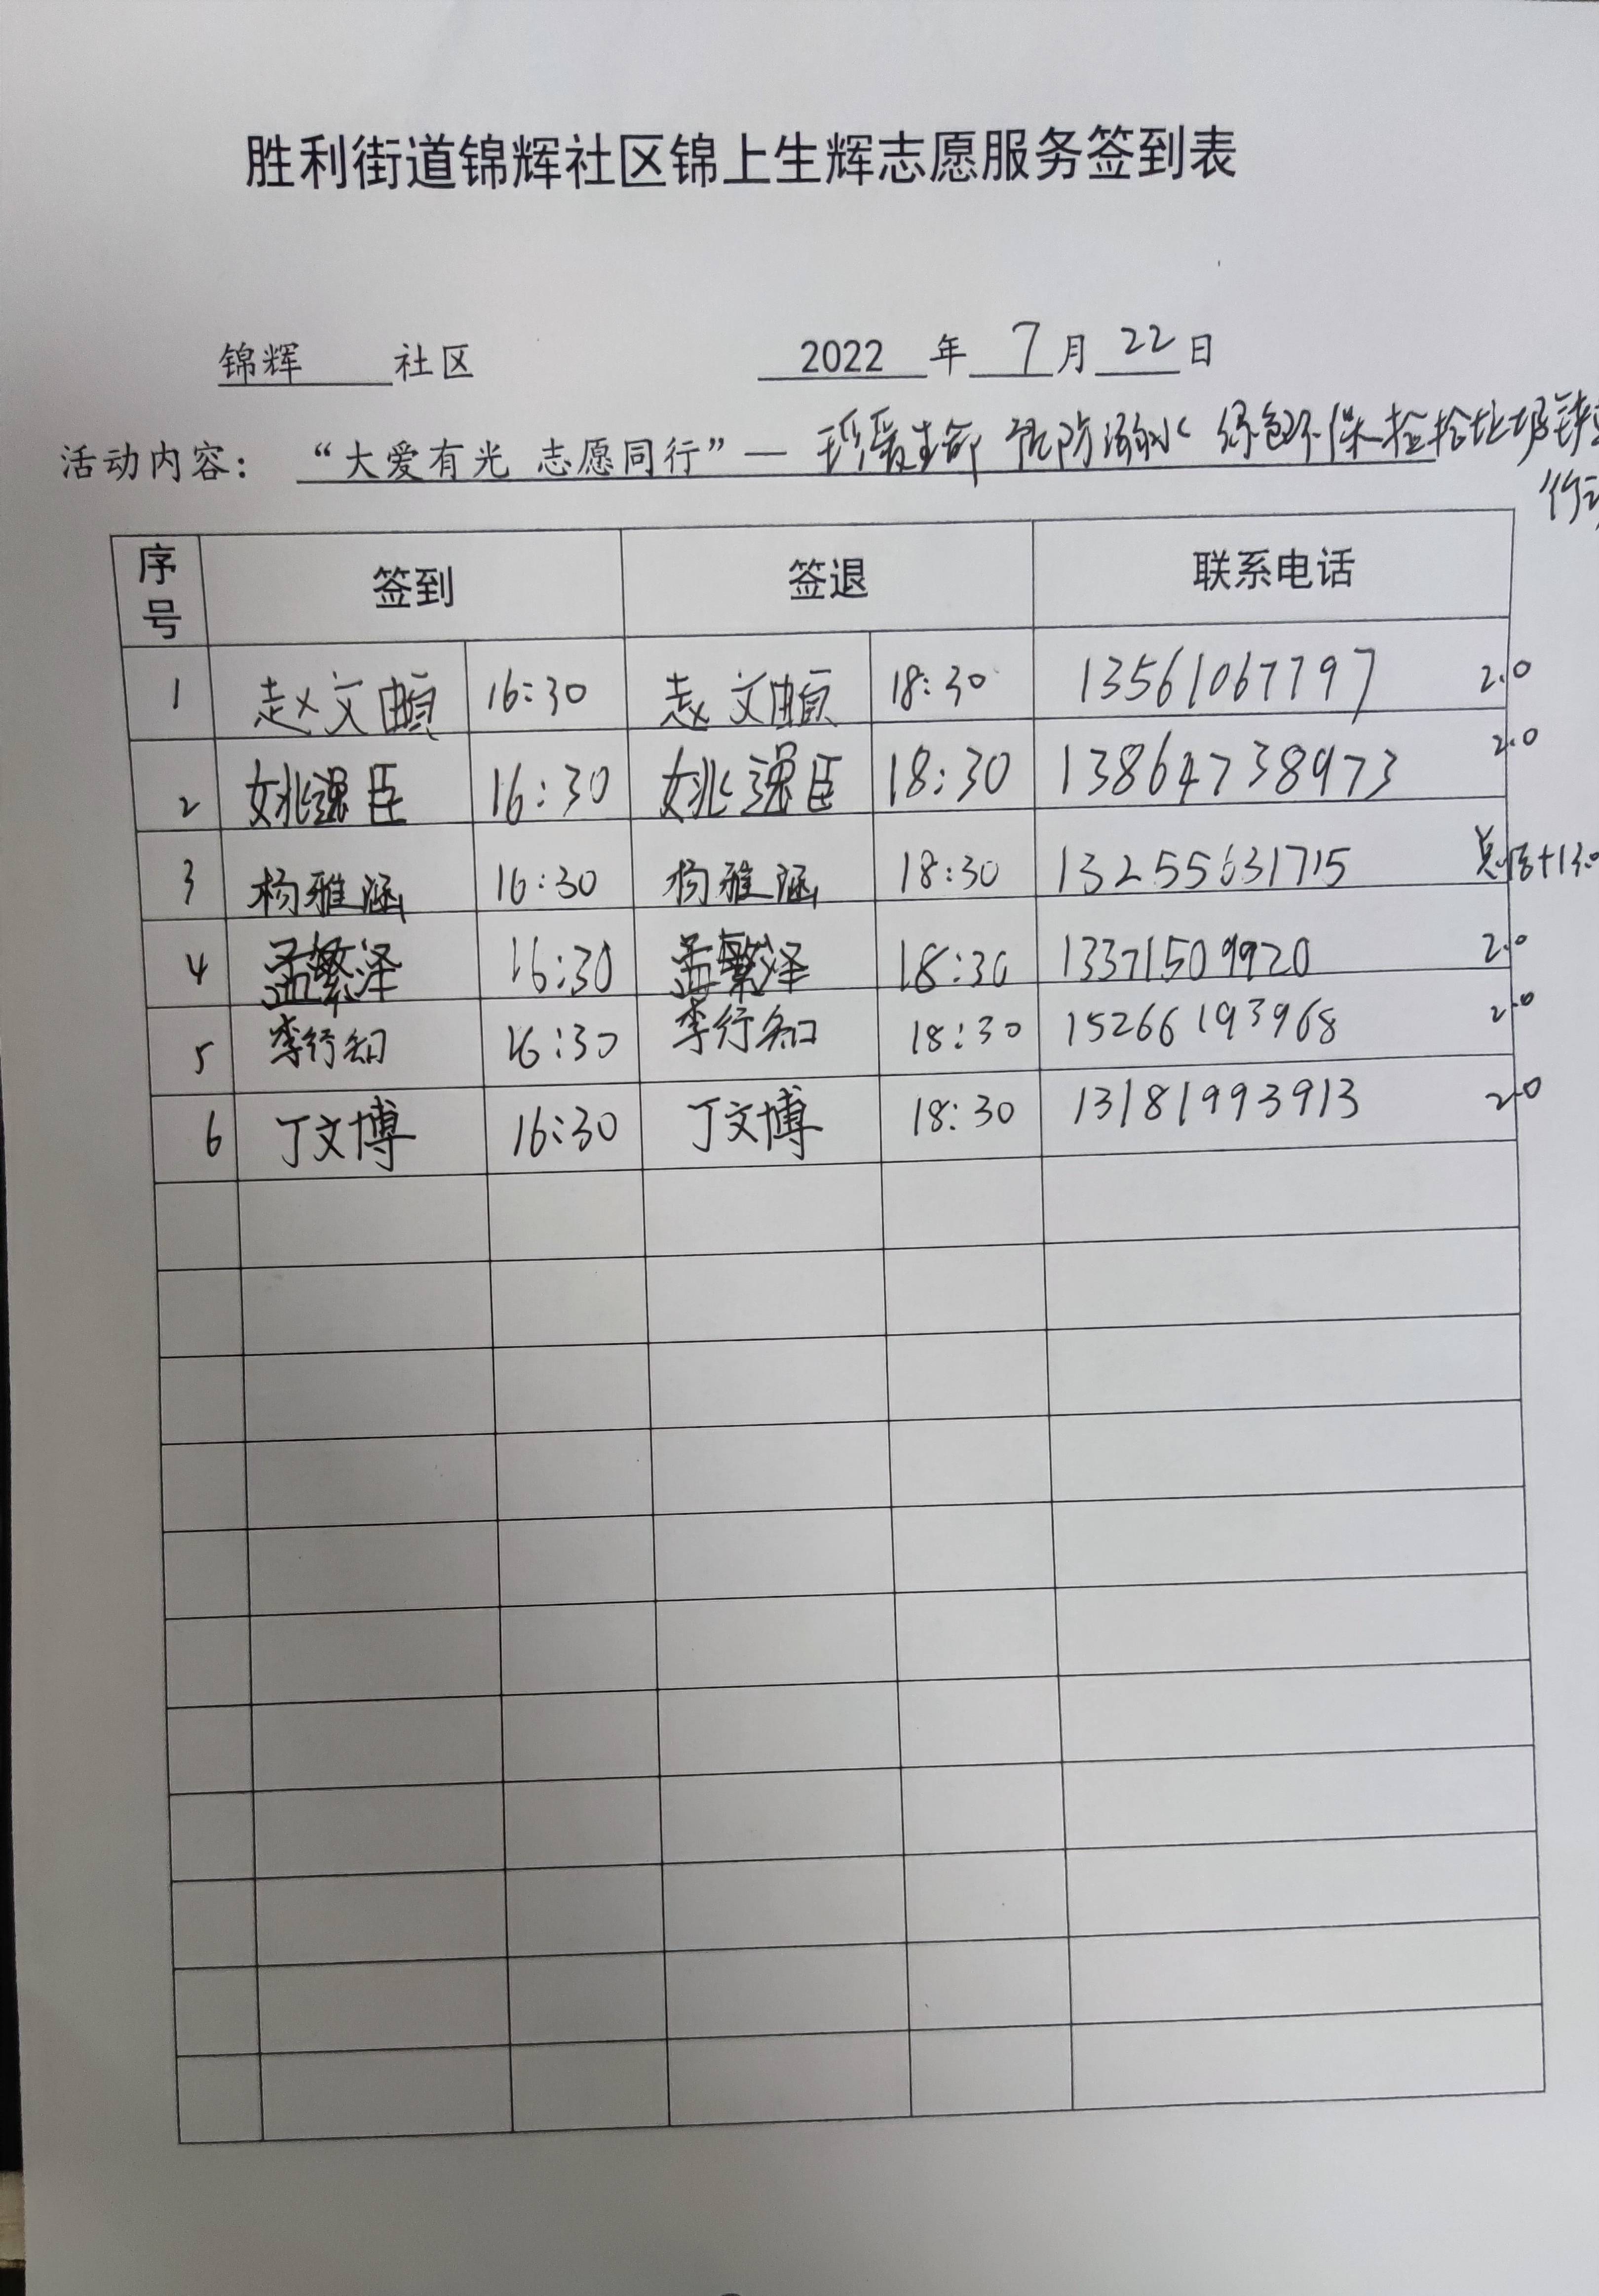 胜利街道锦辉社区锦上生辉志愿服务签到表
锦辉 社区 2022 年 7 月 22 日
活动内容： “大爱有光 志愿同行”— 珍爱生命 预防溺水 绿色环保 捡拾垃圾
序号 签到 签退 联系电话
1 赵文 16:30 赵文 18:30 13561067797 2.0
2 姚逸臣 16:30 姚逸臣 18:30 13864738973 2.0
3 杨雅涵 16:30 杨雅涵 18:30 13255631715
4 孟繁泽 16:30 孟繁泽 18:30 13371509920 2.0
5 李行知 16:30 李行知 18:30 15266193968 2.0
6 丁文博 16:30 丁文博 18:30 13181993913 2.0